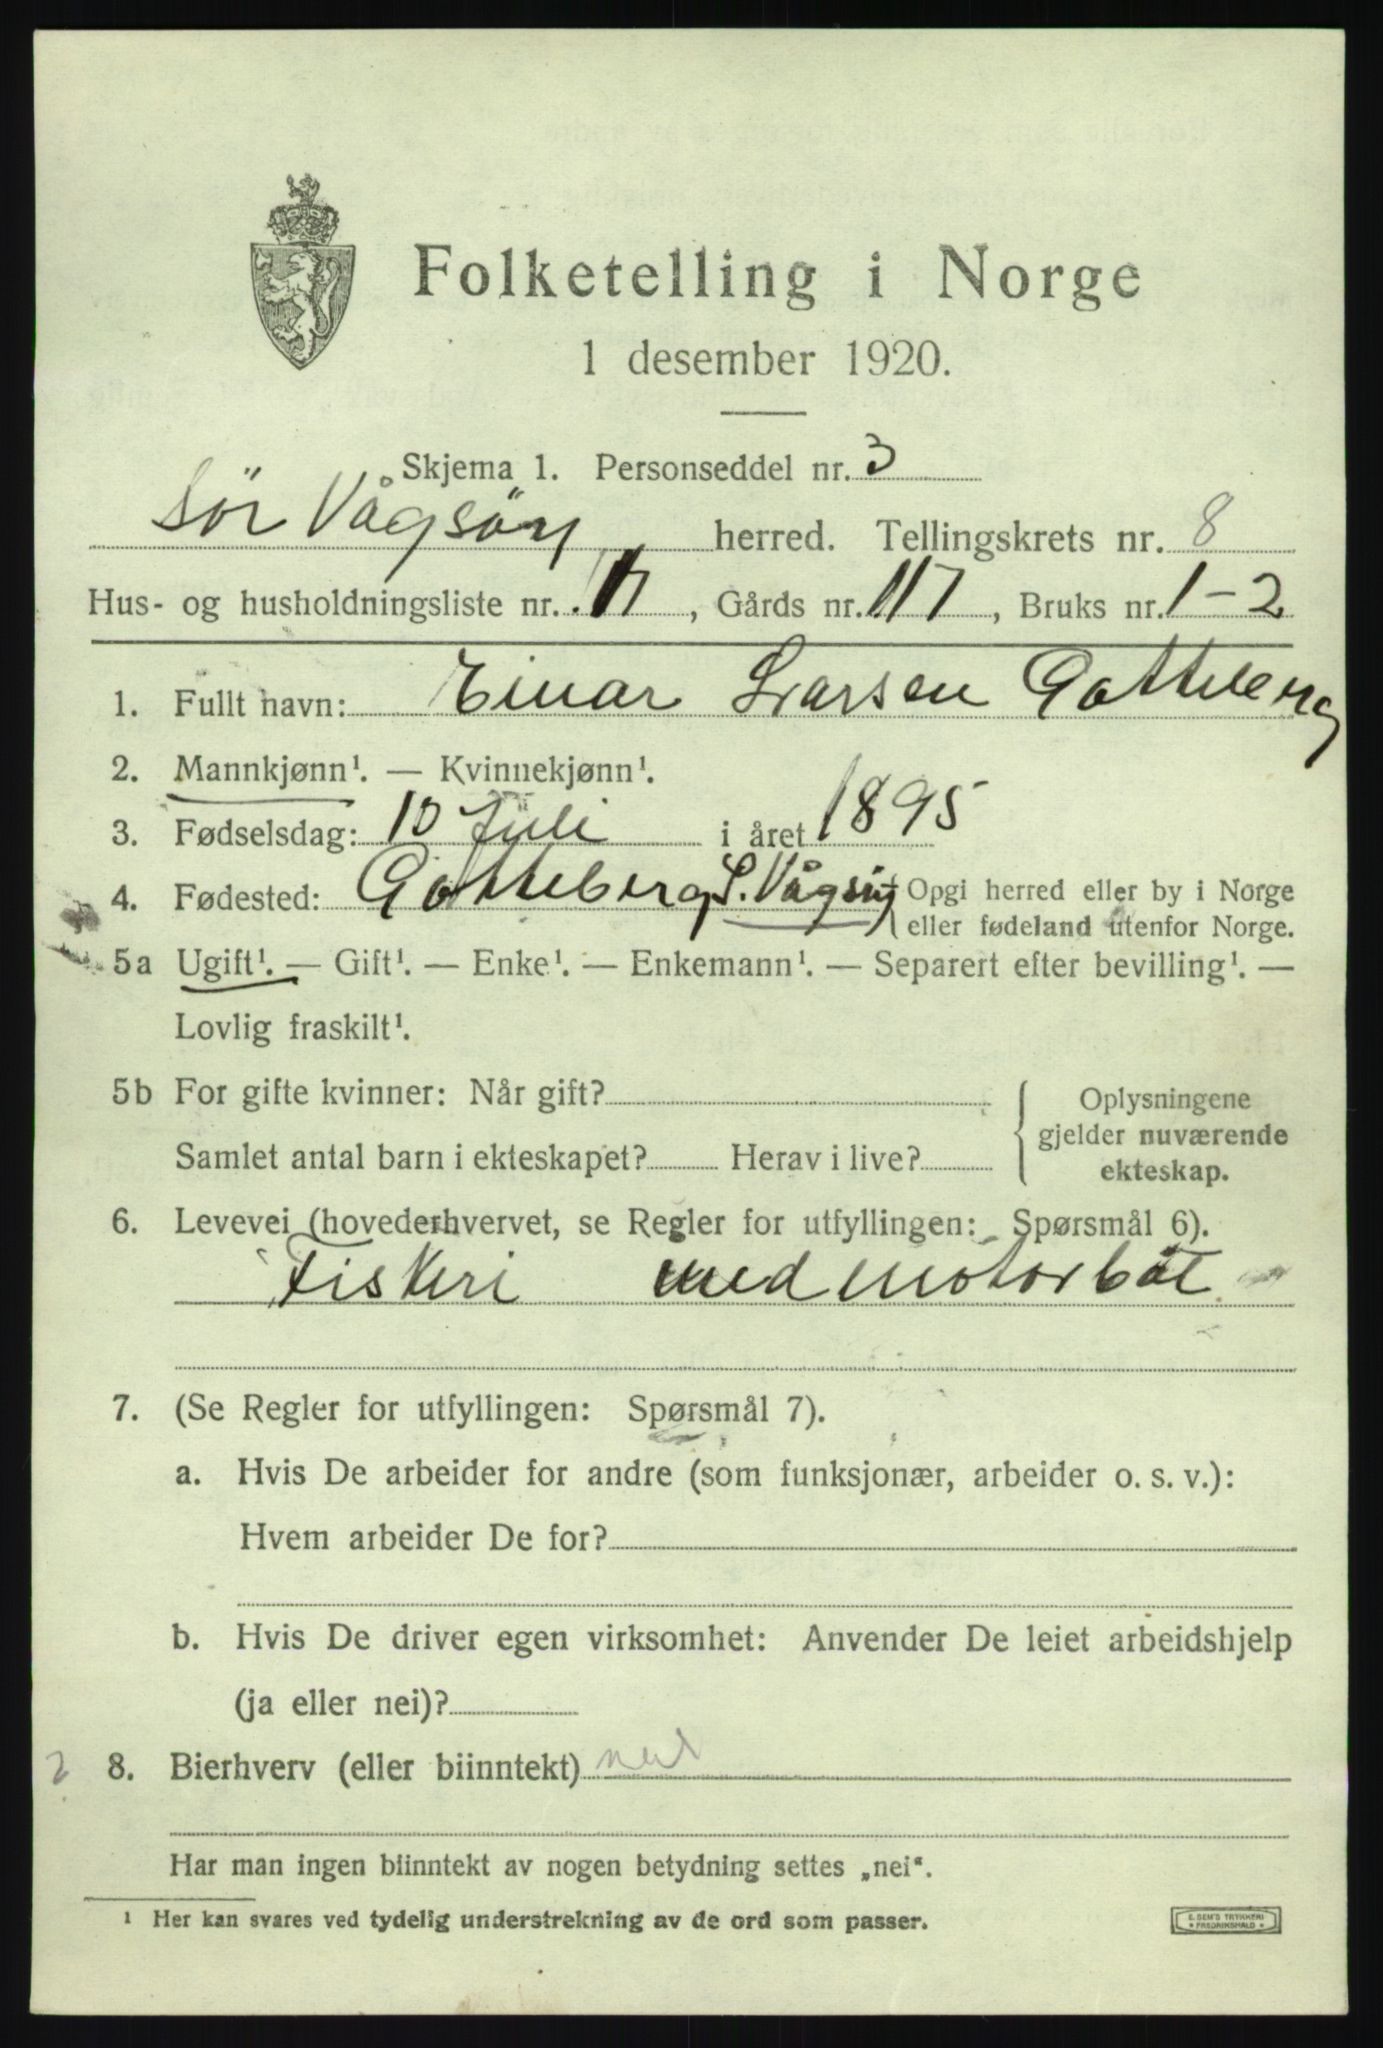 Folketelling i Norge
1 desember 1920.
Skjema 1. Personseddel nr. 3
Sör Vågsöy herred. Tellingskrets nr. 8
Hus- og husholdningsliste nr. , Gårds nr. 117, Bruks nr. 1-2
1. Fullt navn: Einar Larsen Gotteberg
2. Mannkjønn¹. — Kvinnekjønn¹.
3. Fødselsdag: 10 Juli i året 1895
4. Fødested: Gotteberg S. Vågsöy { Opgi herred eller by i Norge
eller fødeland utenfor Norge.
5a Ugift¹. — Gift¹. — Enke¹. — Enkemann¹. — Separert efter bevilling¹. —
Lovlig fraskilt¹.
5b For gifte kvinner: Når gift?
Samlet antal barn i ekteskapet? Herav i live?
{ Oplysningene
gjelder nuværende
ekteskap.
6. Levevei (hovederhvervet, se Regler for utfyllingen: Spørsmål 6).
Fiskeri med motorbåt
7. (Se Regler for utfyllingen: Spørsmål 7).
a. Hvis De arbeider for andre (som funksjonær, arbeider o. s. v.):
Hvem arbeider De for?
b. Hvis De driver egen virksomhet: Anvender De leiet arbeidshjelp
(ja eller nei)?
2 8. Bierhverv (eller biinntekt) nei
Har man ingen biinntekt av nogen betydning settes „nei“.
¹ Her kan svares ved tydelig understrekning av de ord som passer.
E. SEM'S TRYKKERI
* FREDRIKSHALD *